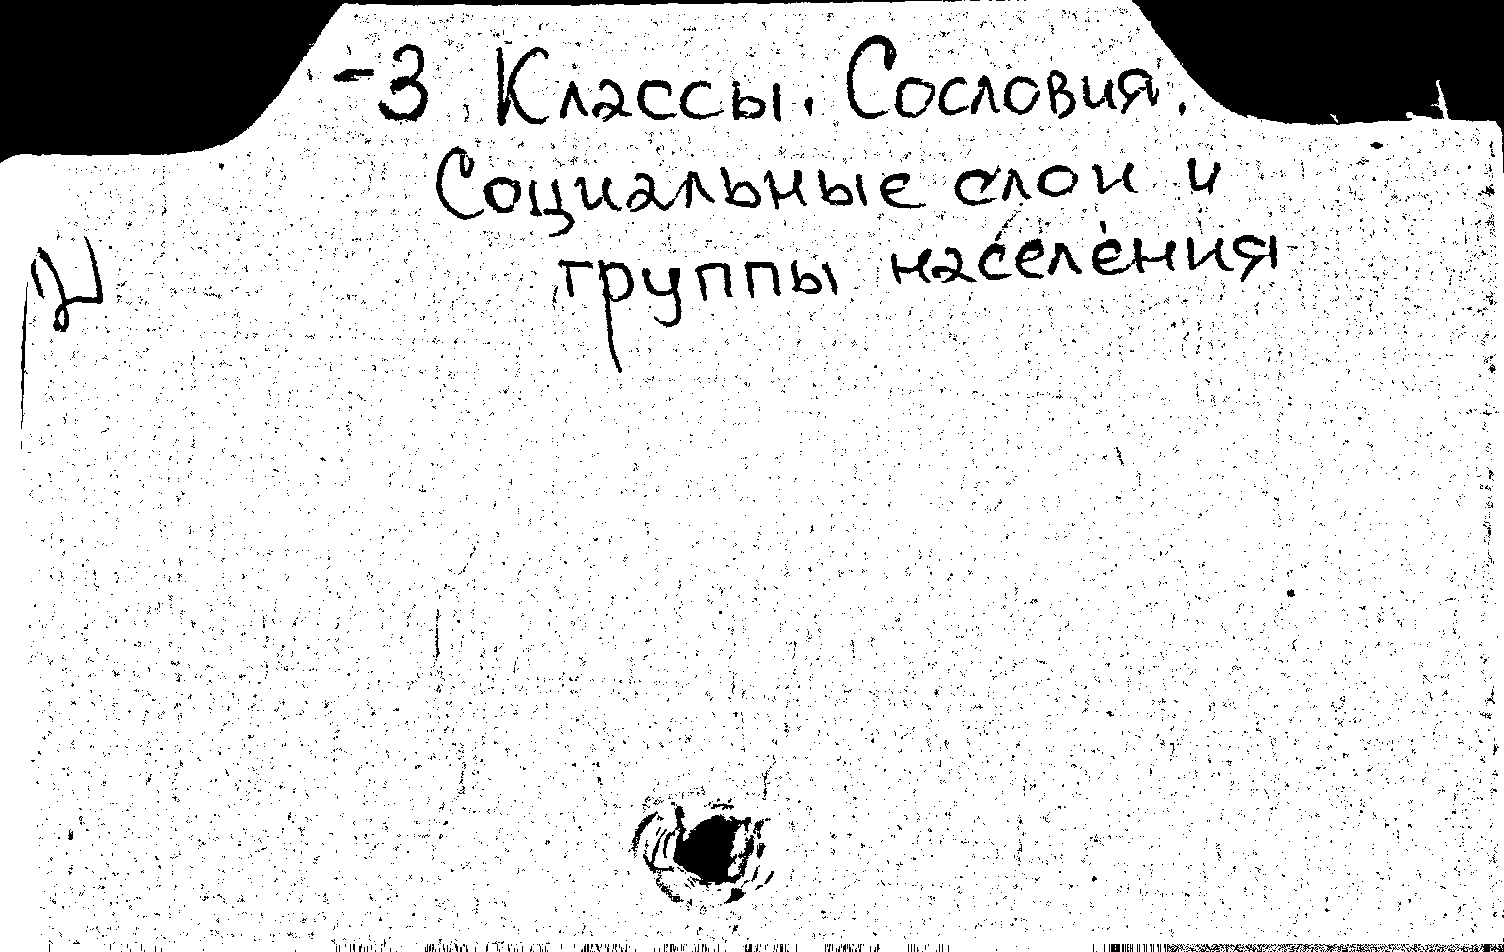 -3 Классы. Сословия.
Социальные слои и
группы населения